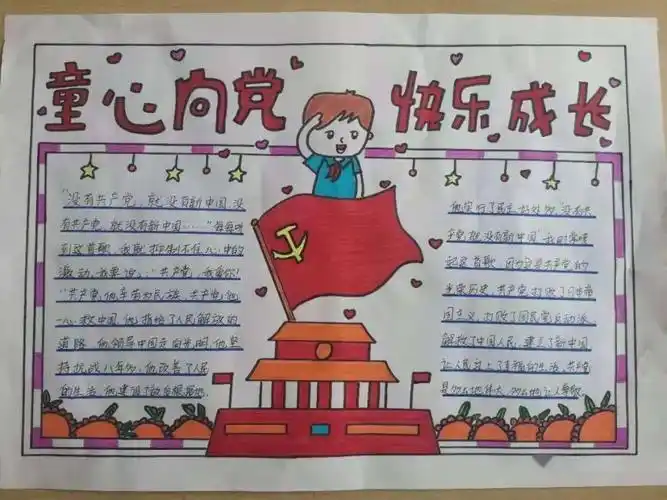 童心向党 快乐成长
"没有共产党,就没有新中国,没
有共产党,就没有新中国……"每每听
到这首歌,我就抑制不住心中的
激动,我要说:"共产党,我爱你!
"共产党,他辛劳为民族,共产党他
一心救中国,他指给了人民解放的
道路,他领导中国走向光明,他坚
持抗战八年多,他改善了人民
的生活,他建设了敌后根据地,
他实行了民主好处多"没有共
产党就没有新中国"我时常唱
起这首歌,因为这是共产党的
光荣历史,共产党打败了日本帝
国主义,打败了国民党反动派
解放了中国人民,建立了新中国
让人民过上了幸福的生活,共产党
是多么地伟大,多么地让人尊敬。